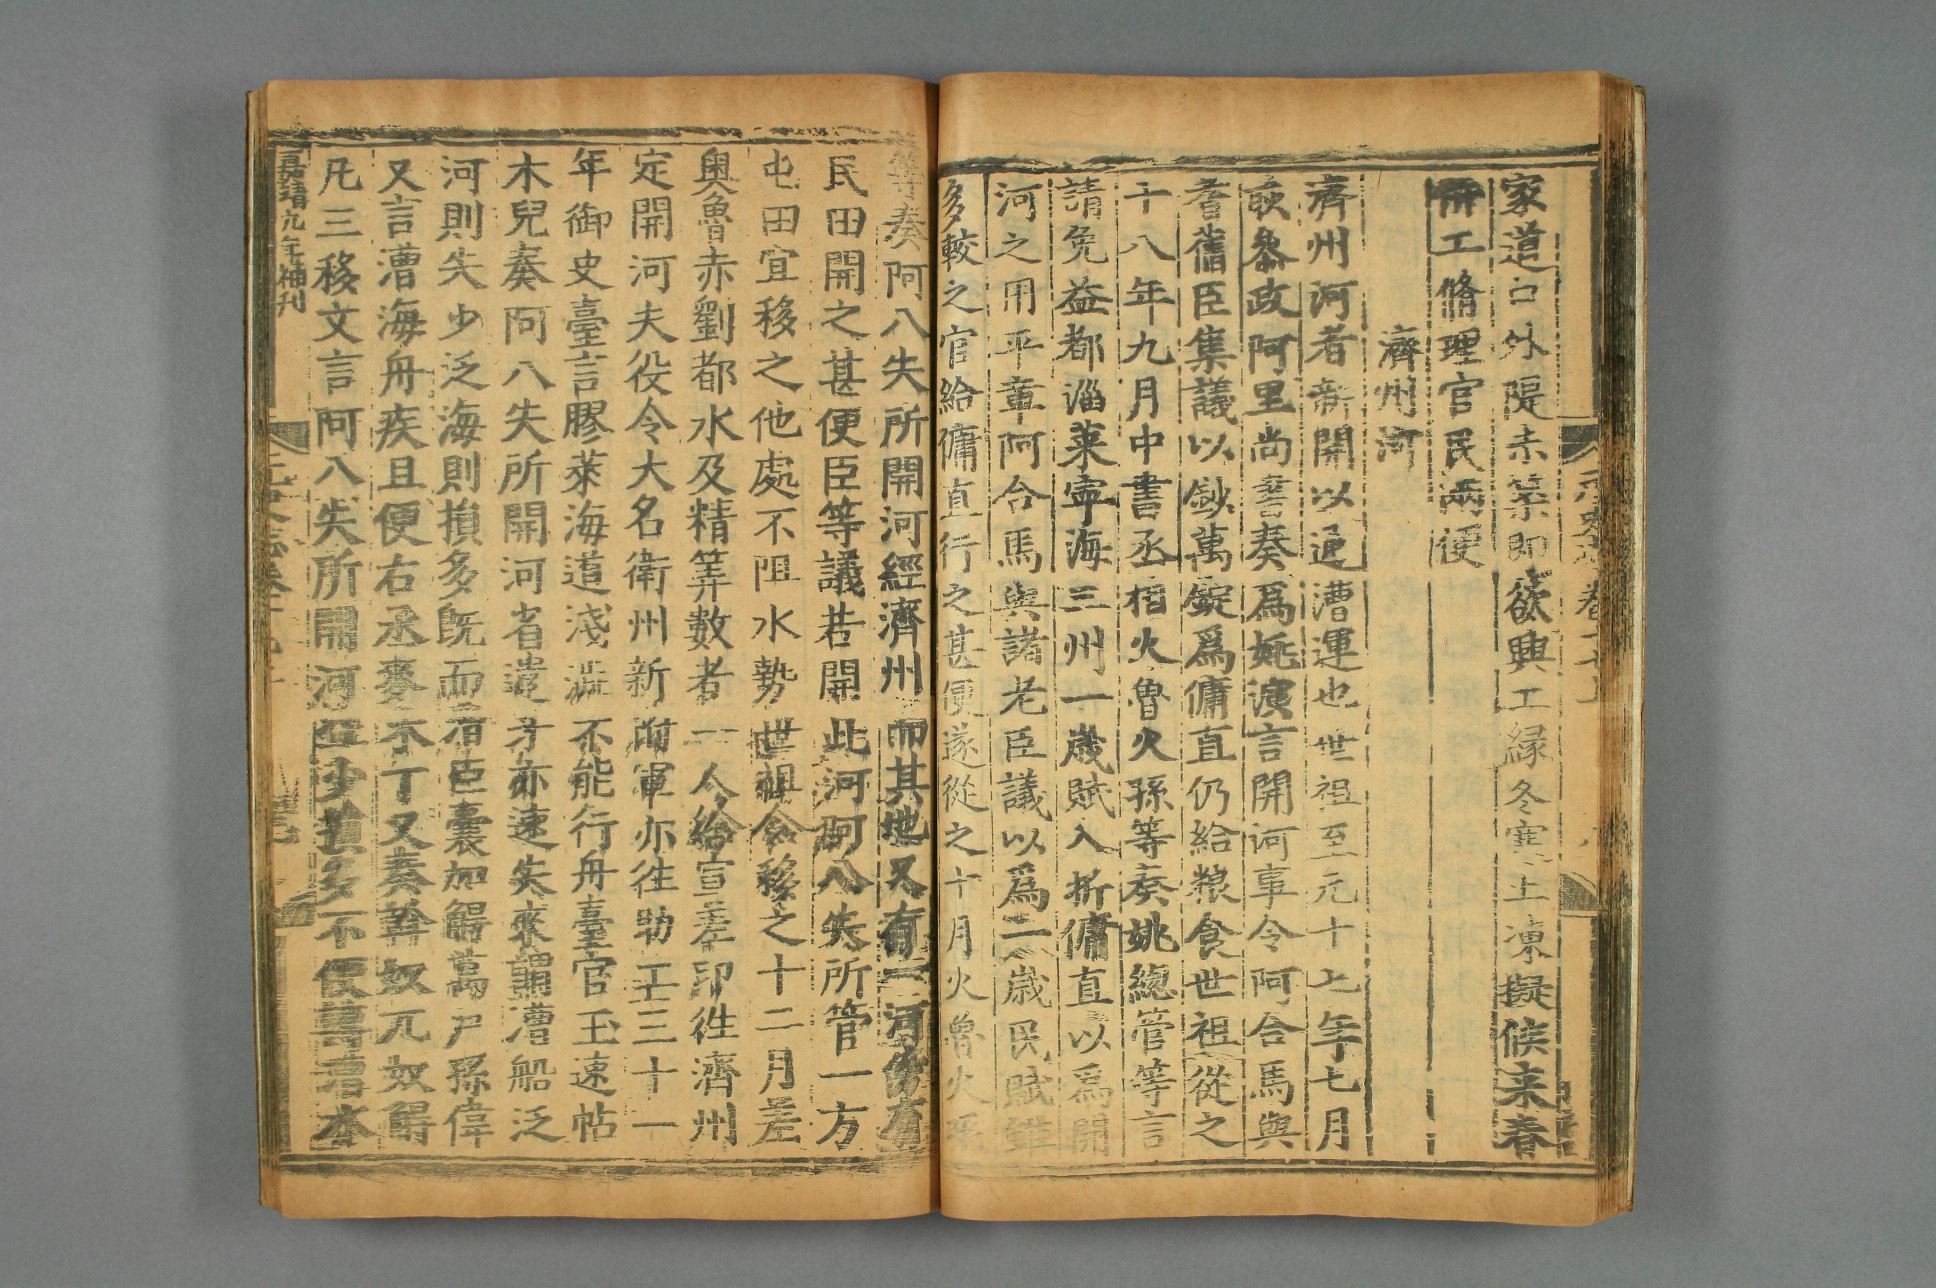 家道口外隄未築即欲興工縁冬寒土凍擬候来春
併工脩理官民兩便
濟州河
濟州河者新開以通漕運也世祖至元十七年七月
耿參政阿里尚書奏爲姚演言開河事令阿合馬與
耆舊臣集議以鈔萬錠爲傭直仍給粮食世祖從之
十八年九月中書丞相火魯火孫等奏姚總管等言
請免益都淄莱寜海三州一歲賦入折傭直以爲開
河之用平章阿合馬與諸老臣議以爲一歲民賦雖
多較之官給傭直行之甚便遂從之十月火魯火孫
等奏阿八失所開河經濟州而其地又有一河傍有
民田開之甚便臣等議若開此河阿八失所管一方
屯田宜移之他處不阻水勢世祖令移之十二月差
奥魯赤劉都水及精筭數者一人給宣差印徃濟州
定開河夫役令大名衛州新附軍亦徃助工三十一
年御史臺言膠萊海道淺澁不能行舟臺官玉速帖
木兒奏阿八失所開河省遣牙亦速失來謂漕船泛
河則失少泛海則損多既而省臣囊加觧萬戸孫偉
又言漕海舟疾且便右丞麥木丁又奏斡奴兀奴觧
凡三移文言阿八失所開河益少損多不便轉漕水
嘉靖九年補刊